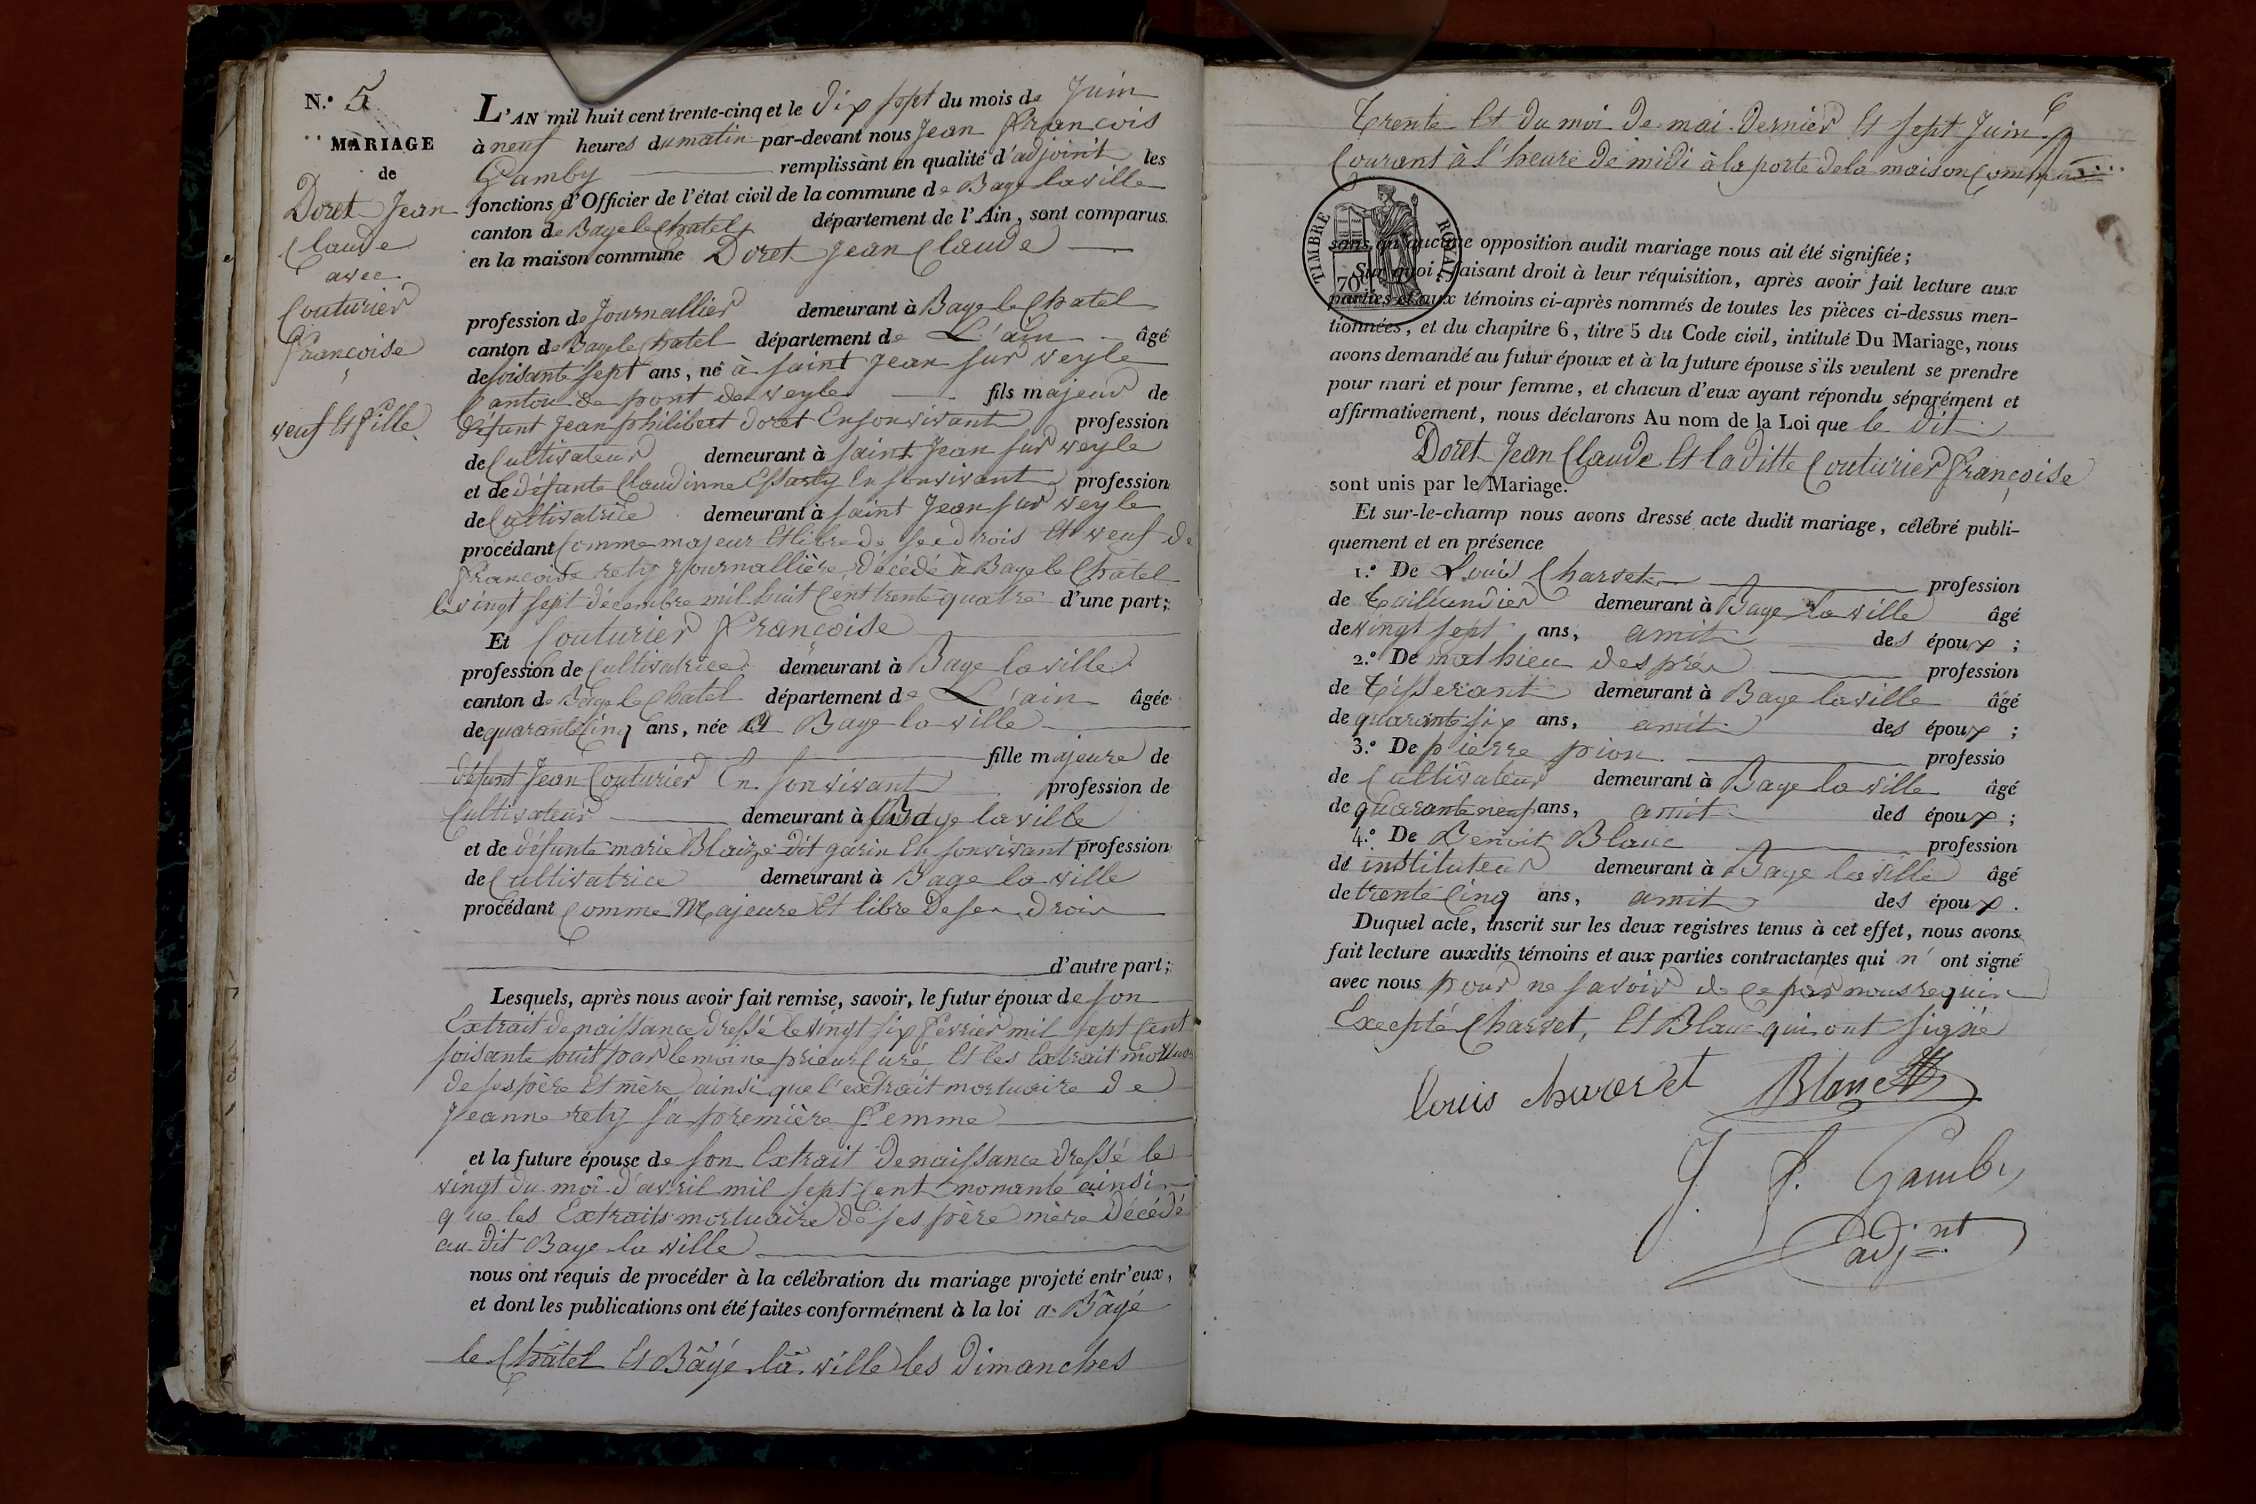 N.° 5
MARIAGE
de
Doret Jean
Claude
avec
Couturier
Françoise
veuf Et fille
L'AN mil huit cent trente-cinq et le dix sept du mois de Juin
à neuf heures du matin par-devant nous Jean François
Gamby remplissant en qualité d'adjoint les
fonctions d'Officier de l'état civil de la commune de Bage laville
canton de Bage le Chatel département de l'Ain, sont comparus
en la maison commune Doret Jean Claude
profession de Journallier demeurant à Bage le Chatel
canton de Bage le Chatel département de L'ain âgé
de soisante sept ans, né à saint Jean sur veyle
Canton de pont de veyle fils majeur de
défunt Jean philibert Doret En son vivant profession
de Cultivateur demeurant à saint Jean sur veyle
et de défunte Claudinne En son vivant profession
de Cultivatrice demeurant à saint Jean sur veyle
procédant Comme majeur Et libre de se drois Et veuf de
Françoise rety Journallière, décédé à Bage le Chatel
le vingt sept décembre mil huit Cent trente quatre d'une part;
Et Couturier Françoise
profession de Cultivatrice demeurant à Bage la ville
canton de Bage le Chatel département de L'ain âgée
de quarante Cinq ans, née a Bage la ville
fille majeure de
défunt Jean Couturier En son vivant profession de
Cultivateur demeurant à Bage la ville
et de défunte marie Blaize dit garin En son vivant profession
de Cultivatrice demeurant à Bage la ville
procédant Comme Majeure Et libre de ses drois
d'autre part;
Lesquels, après nous avoir fait remise, savoir, le futur époux de son
Extrait de naissance dressé le vingt six Fevrier mil sept Cent
soisante huit par lemoine prieur Curé, Et les Extrait
de ses père Et mère ainsi que l'extrait mortuaire de
Jeanne rety sa première Femme
et la future épouse de son Extrait de naissance dressé le
vingt du moi d'avril mil sept Cent nonante ainsi
que les Extraits mortuaire de ses père mère décédé
au dit Bage la ville
nous ont requis de procéder à la célébration du mariage projeté entr'eux,
et dont les publications ont été faites conformément à la loi a Bâgé
le Châtel Et Bâgé la ville les Dimanches
Trente Et du moi de mai dernier Et sept Juin
Courant à l'heure de midi à la porte de la maison Commune
TIMBRE ROYAL
70c
sans qu'aucune opposition audit mariage nous ait été signifiée;
Sur quoi, faisant droit à leur réquisition, après avoir fait lecture aux
parties et aux témoins ci-après nommés de toutes les pièces ci-dessus men-
tionnées, et du chapitre 6, titre 5 du Code civil, intitulé Du Mariage, nous
avons demandé au futur époux et à la future épouse s'ils veulent se prendre
pour mari et pour femme, et chacun d'eux ayant répondu séparément et
affirmativement, nous déclarons Au nom de la Loi que le dit
Doret Jean Claude Et la ditte Couturier Françoise
sont unis par le Mariage.
Et sur-le-champ nous avons dressé acte dudit mariage, célébré publi-
quement et en présence
1.° De Louis Charvet profession
de Taillandier demeurant à Bage la ville âgé
de vingt sept ans, amit des époux;
2.° De mathieu desprér profession
de Tisserant demeurant à Bage la ville âgé
de quarante six ans, amit des époux;
3.° De pierre pion professio
de Cultivateur demeurant à Bage la ville âgé
de quarante neuf ans, amit des époux;
4.° De Benoit Blanc profession
de instituteur demeurant à Bage la ville âgé
de trente Cinq ans, amit des époux.
Duquel acte, inscrit sur les deux registres tenus à cet effet, nous avons
fait lecture auxdits témoins et aux parties contractantes qui n' ont signé
avec nous pour ne savoir de Ce par nous requis
Excepté Charvet, Et Blanc qui ont signé
louis charvet Blanc
J. F. Gamby
adjnt